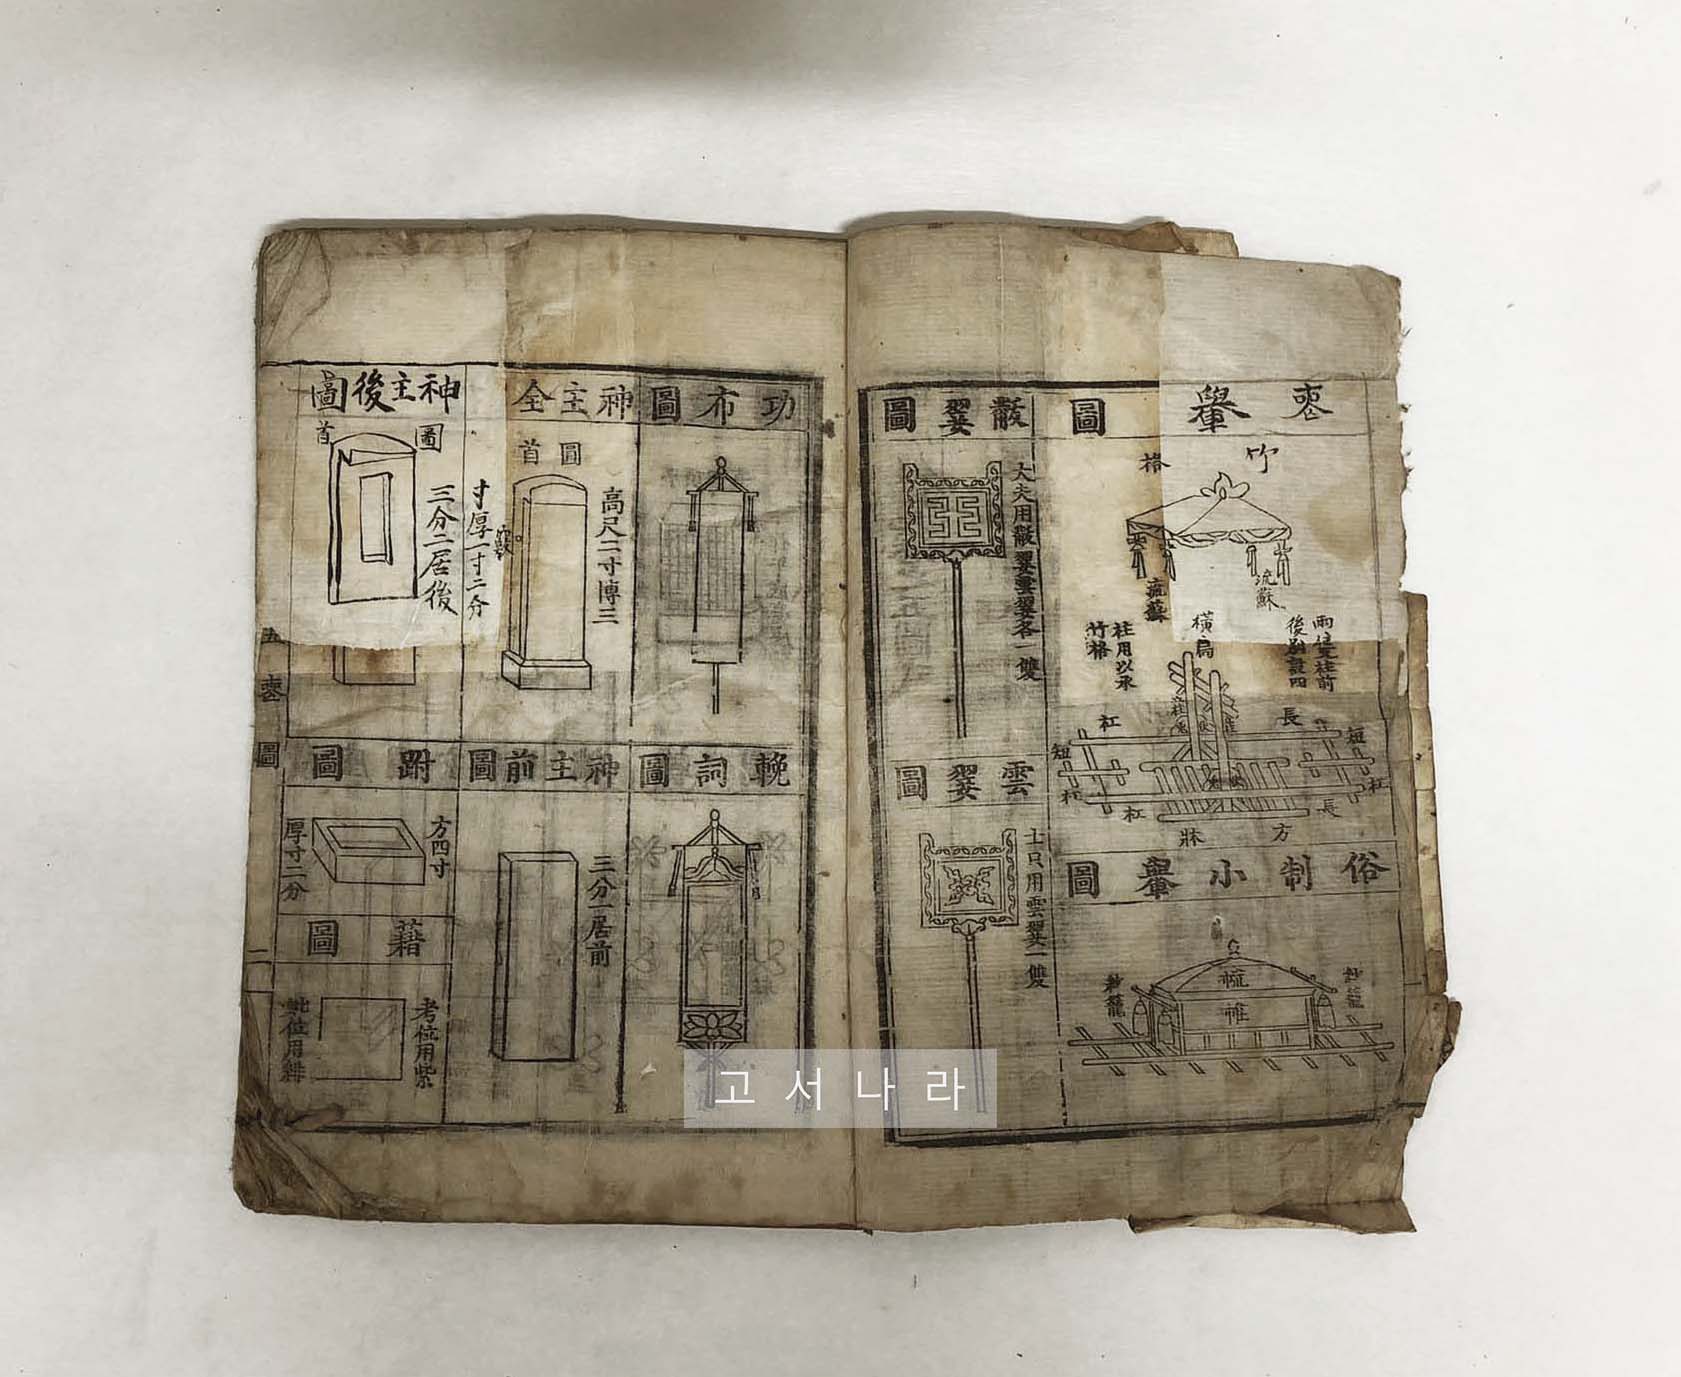 喪轝圖
竹格
流蘇
流蘇
兩柱前
後別設四
橫扃
柱用以承
竹格
長
杠
短
短
杠
杠
杠
長
方牀
俗制小轝圖
紗籠
紗籠
帷
黻翣圖
大夫用黻翣雲翣各一雙
雲翣圖
士只用雲翣一雙
功布圖
輓詞圖
神主全
圖首
高尺二寸博三
寸厚一寸二分
竅
神主前圖
三分一居前
神主後圖
圖首
三分二居後
趺圖
方四寸
厚寸二分
藉圖
考位用紫
妣位用緋
五 喪 圖 二
고서나라